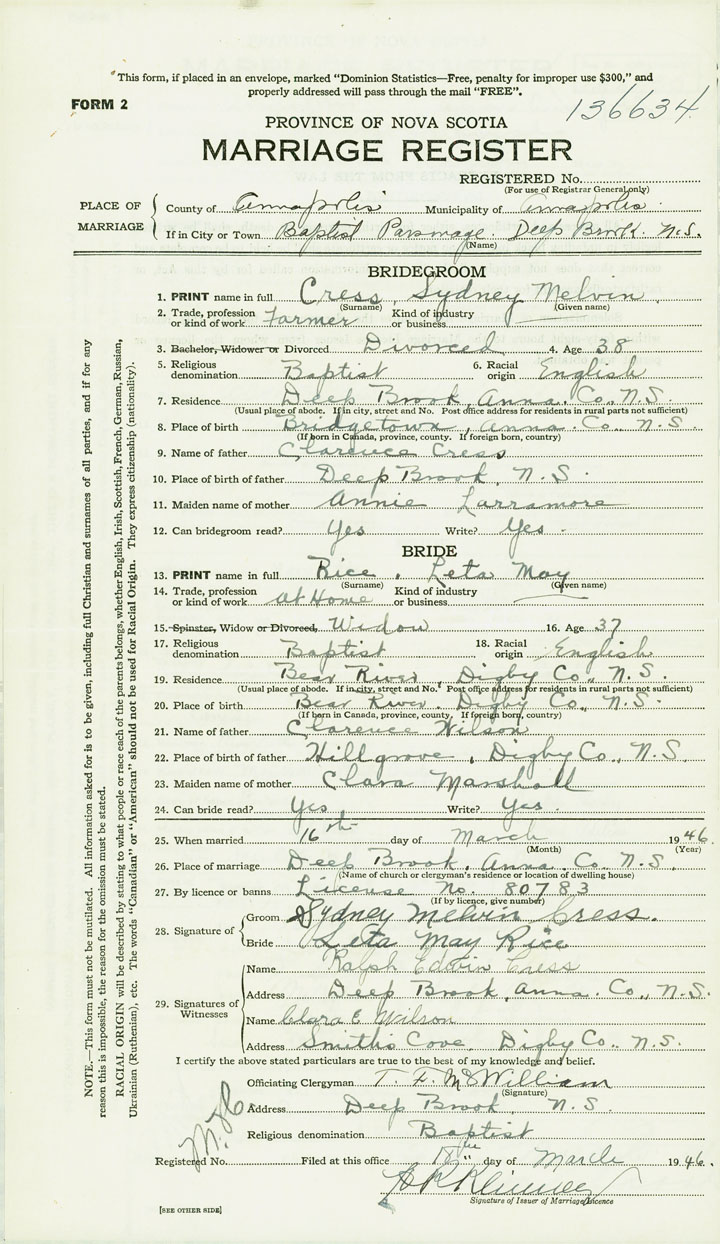 This form, if placed in an envelope, marked “Dominion Statistics—Free, penalty for improper use $300,” and
properly addressed will pass through the mail “FREE”.
FORM 2
136634
PROVINCE OF NOVA SCOTIA
MARRIAGE REGISTER
REGISTERED No.
(For use of Registrar General only)
PLACE OF MARRIAGE
County of Annapolis Municipality of Annapolis
If in City or Town Baptist Parsonage. Deep Brook. N.S.
(Name)
BRIDEGROOM
1. PRINT name in full Cress, Sydney Melvin
(Surname) (Given name)
2. Trade, profession or kind of work Farmer Kind of industry or business
3. Bachelor, Widower or Divorced Divorced 4. Age 38
5. Religious denomination Baptist 6. Racial origin English
7. Residence Deep Brook, Anna. Co., N.S.
(Usual place of abode. If in city, street and No. Post office address for residents in rural parts not sufficient)
8. Place of birth Bridgetown, Anna. Co., N.S.
(If born in Canada, province, county. If foreign born, country)
9. Name of father Clarence Cress
10. Place of birth of father Deep Brook, N.S.
11. Maiden name of mother Annie Larramore
12. Can bridegroom read? Yes Write? Yes.
BRIDE
13. PRINT name in full Rice, Leta May
(Surname) (Given name)
14. Trade, profession or kind of work At Home Kind of industry or business
15. Spinster, Widow or Divorced, Widow 16. Age 37
17. Religious denomination Baptist 18. Racial origin English
19. Residence Bear River, Digby Co., N.S.
(Usual place of abode. If in city, street and No. Post office address for residents in rural parts not sufficient)
20. Place of birth Bear River. Digby Co., N.S.
(If born in Canada, province, county. If foreign born, country)
21. Name of father Clarence Wilson
22. Place of birth of father Hillgrove, Digby Co., N.S
23. Maiden name of mother Clara Marshall
24. Can bride read? Yes Write? Yes.
25. When married 16th day of March 1946.
(Month) (Year)
26. Place of marriage Deep Brook, Anna. Co. N.S.
(Name of church or clergyman's residence or location of dwelling house)
27. By licence or banns License No. 80783
(If by licence, give number)
28. Signature of
Groom Sydney Melvin Cress.
Bride Leta May Rice
29. Signatures of Witnesses
Name Ralph Edwin Cress
Address Deep Brook, Anna. Co., N.S.
Name Clara E Wilson
Address Smith's Cove Digby Co., N.S.
I certify the above stated particulars are true to the best of my knowledge and belief.
Officiating Clergyman T. F. McWilliam
(Signature)
Address Deep Brook, N.S.
Religious denomination Baptist
Registered No. Filed at this office 18th day of March 1946.
Signature of Issuer of Marriage Licence
[SEE OTHER SIDE]
NOTE.—This form must not be mutilated. All information asked for is to be given, including full Christian and surnames of all parties, and if for any
reason this is impossible, the reason for the omission must be stated.
RACIAL ORIGIN will be described by stating to what people or race each of the parents belongs, whether English, Irish, Scottish, French, German, Russian,
Ukrainian (Ruthenian), etc. The words “Canadian” or “American” should not be used for Racial Origin. They express citizenship (nationality).